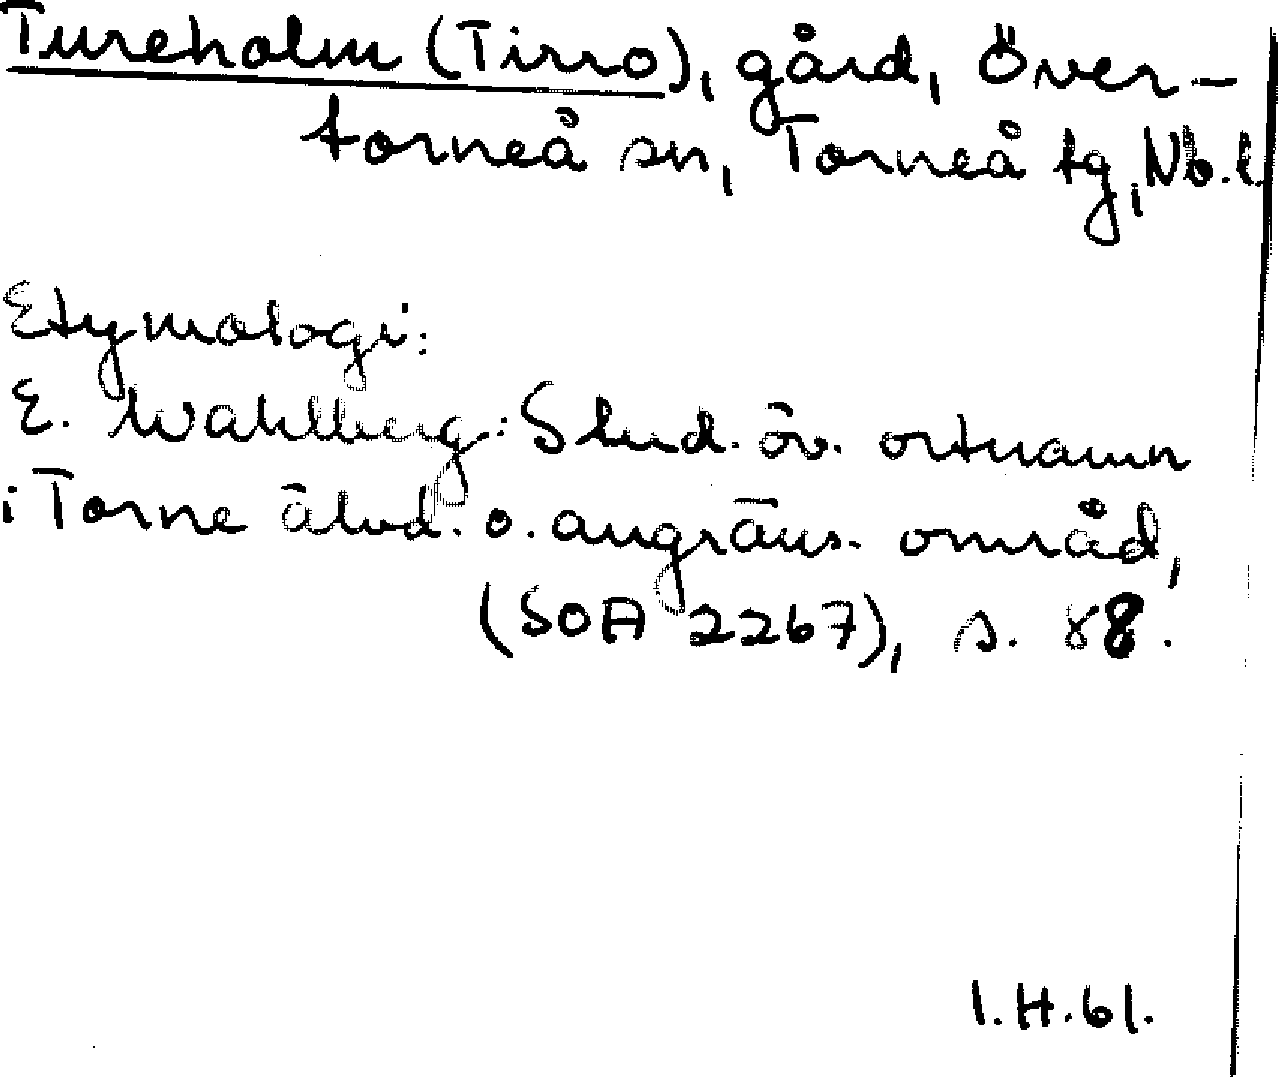 Tureholm (Tirro), gård, Över-
torneå sn, Torneå tg, Nb.l
Etymologi:
E. Wahlberg: Stud. öv. ortnamn
i Torne älvd. o. angräns. områd,
(SOA 2267), s. 88.
I.H.61.